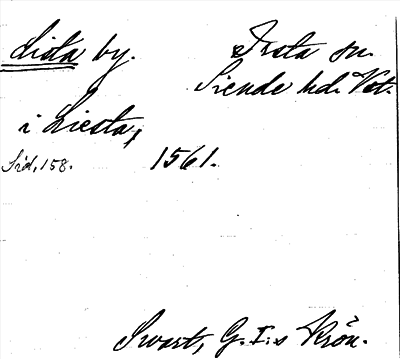 Lista by. Irsta sn.
Siende hd. Vst.
i Liesta,
Sid. 158. 1561.
Swart, G. I:s Krön.